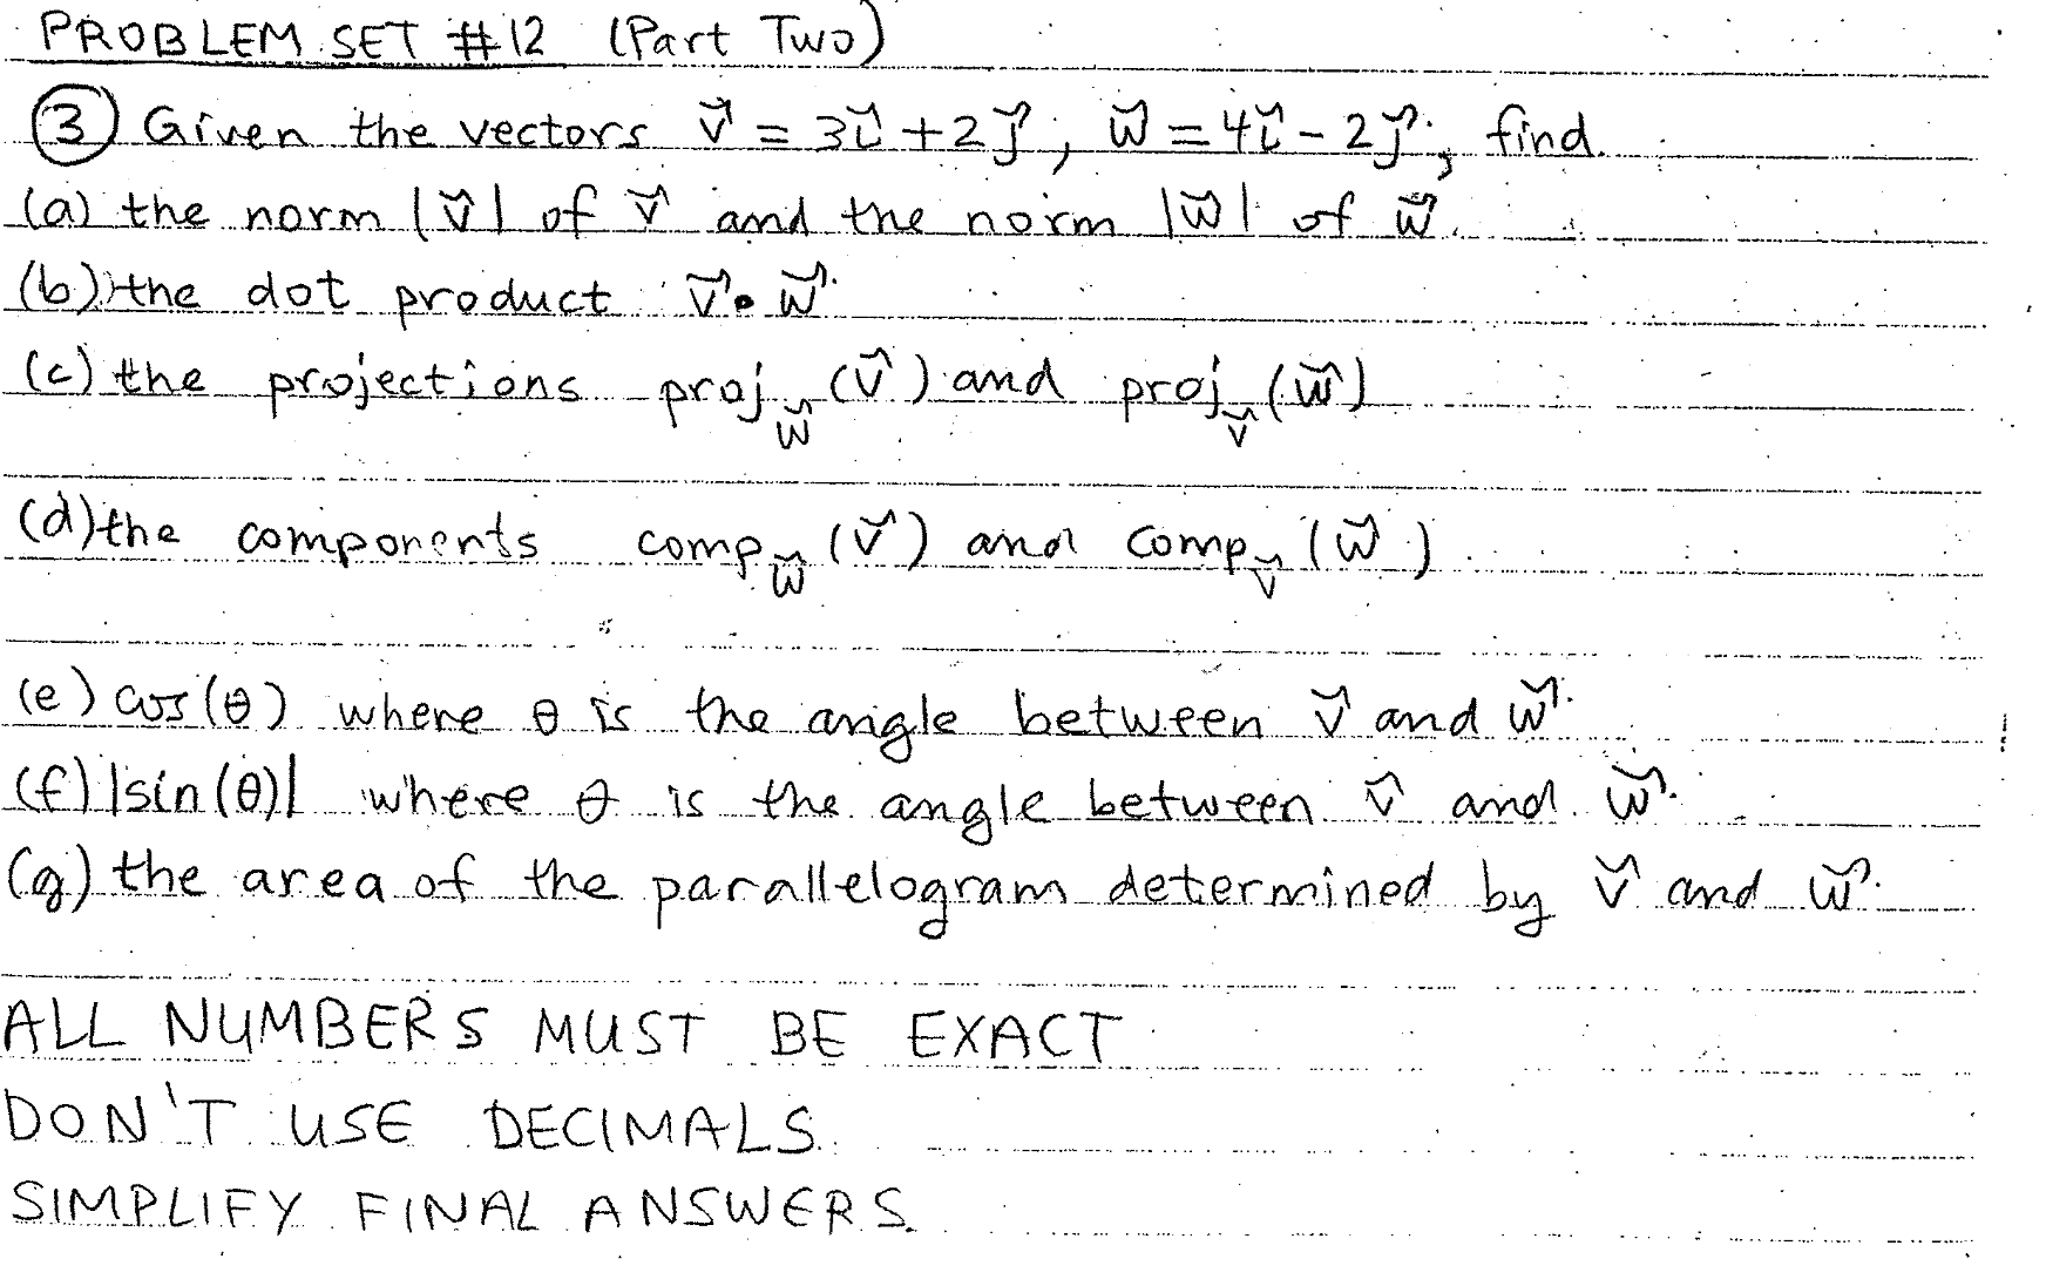 PROBLEM SET #12 (Part Two)
③ Given the vectors v⃗ = 3i⃗ + 2j⃗, w⃗ = 4i⃗ - 2j⃗, find
(a) the norm |v⃗| of v⃗ and the norm |w⃗| of w⃗.
(b) the dot product v⃗ • w⃗.
(c) the projections proj_w⃗ (v⃗) and proj_v⃗ (w⃗)
(d) the components comp_w⃗ (v⃗) and comp_v⃗ (w⃗).
(e) cos(θ) where θ is the angle between v⃗ and w⃗.
(f) |sin(θ)| where θ is the angle between v⃗ and w⃗.
(g) the area of the parallelogram determined by v⃗ and w⃗.
ALL NUMBERS MUST BE EXACT
DON'T USE DECIMALS.
SIMPLIFY FINAL ANSWERS.